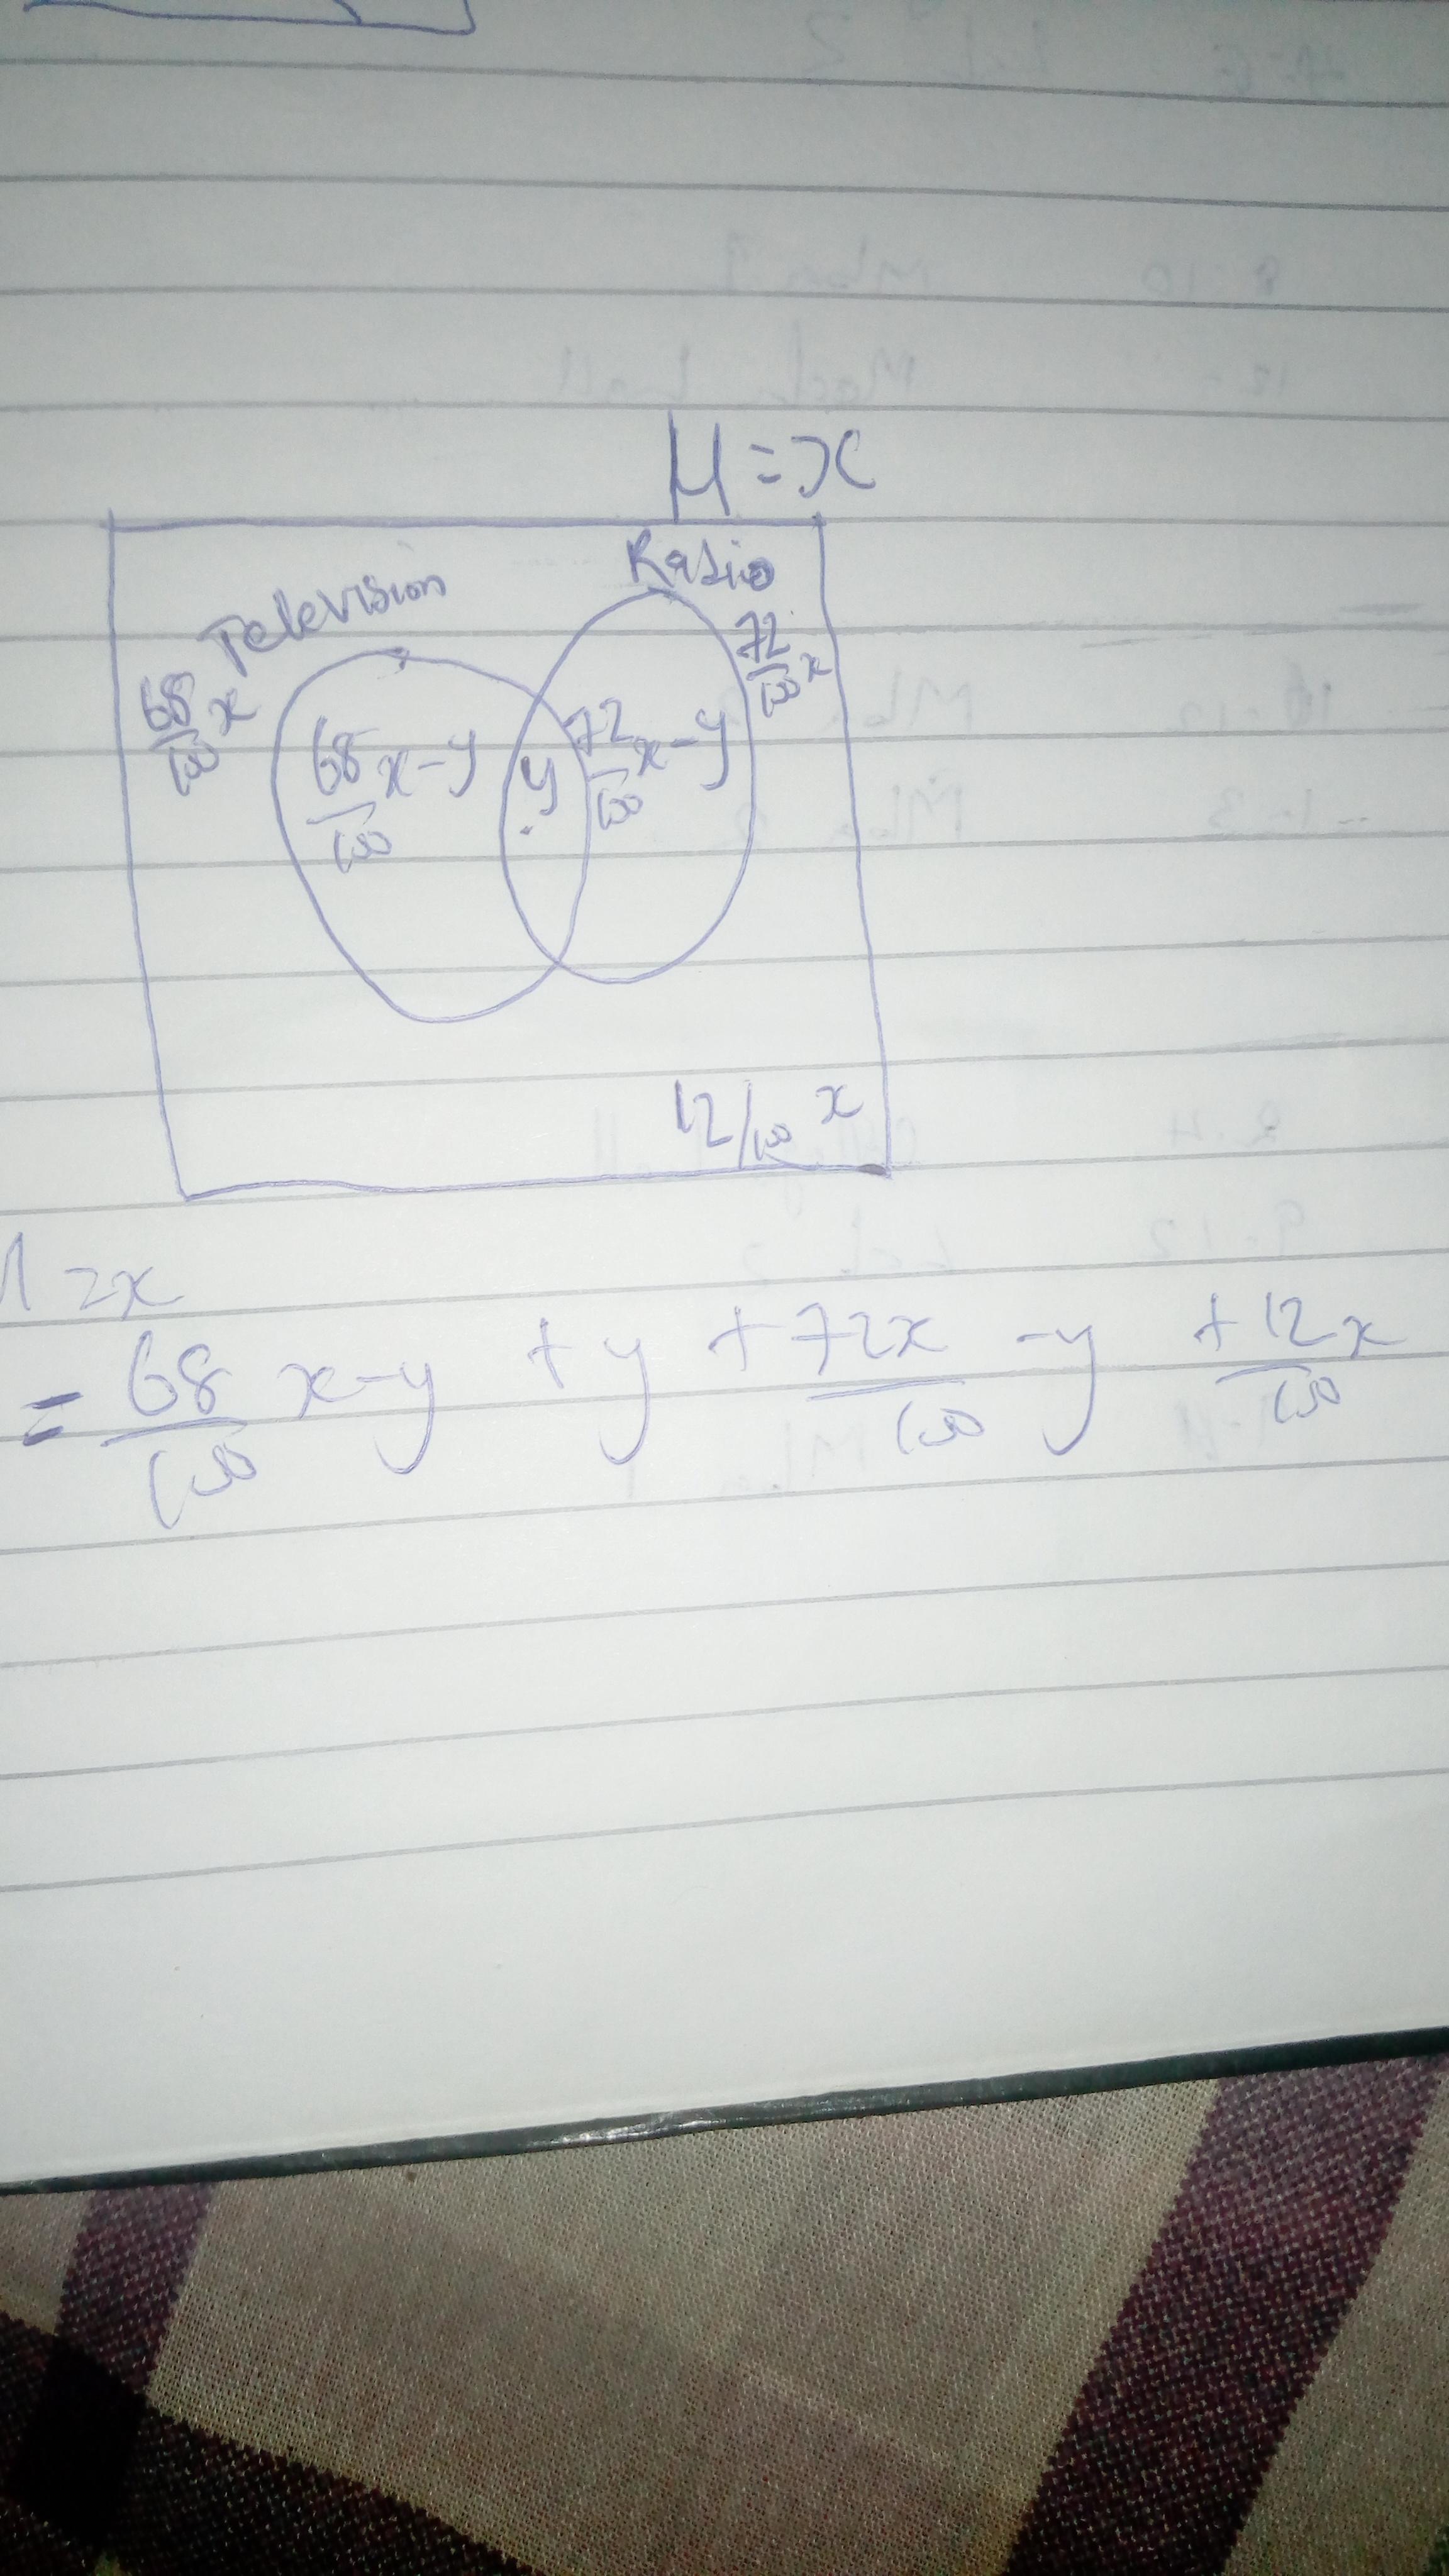 μ = x
Radio
Television
72/100 x
68/100 x
68/100 x - y
y
72/100 x - y
12/100 x
= x
= 68/100 x - y + y + 72x/100 - y + 12x/100